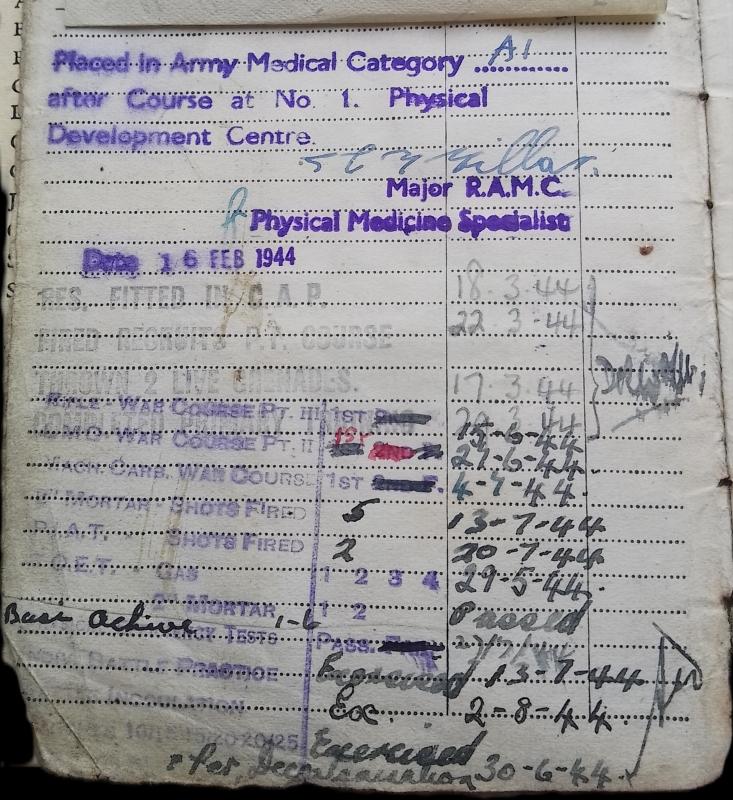 Placed in Army Medical Category A1
after Course at No. 1. Physical
Development Centre.
Major R.A.M.C.
Physical Medicine Specialist
Date 16 FEB 1944
RES. FITTED IN C.A.P. 18.3.44
FIRED RECRUITS P.T. COURSE 22 3-44
THROWN 2 LIVE GRENADES. 17.3.44
COMPLETED PRIMARY 3 44
RIFLE-WAR COURSE PT. III 1ST 15-6-44
L.M.G. WAR COURSE PT. II 1ST 21-6-44
MACH. CARB. WAR COURSE 1ST 4-7-44.
2" MORTAR-SHOTS FIRED 5 13-7-44
P.I.A.T. - SHOTS FIRED 2 20-7-44
T.O.E.T. - GAS 1 2 3 4 29-5-44.
2" MORTAR 1 2 Passed
Basic 1-6 TESTS PASS.
BATTLE PRACTICE Exercised 13-7-44
INOCULATION Ex. 2-8-44.
Exercised
30-6-44.